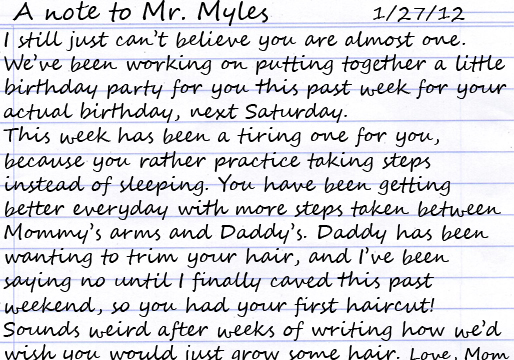 A note to Mr. Myles 1/27/12
I still just can't believe you are almost one.
We've been working on putting together a little
birthday party for you this past week for your
actual birthday, next Saturday.
This week has been a tiring one for you,
because you rather practice taking steps
instead of sleeping. You have been getting
better everyday with more steps taken between
Mommy's arms and Daddy's. Daddy has been
wanting to trim your hair, and I've been
saying no until I finally caved this past
weekend, so you had your first haircut!
Sounds weird after weeks of writing how we'd
wish you would just grow some hair. Love, Mom